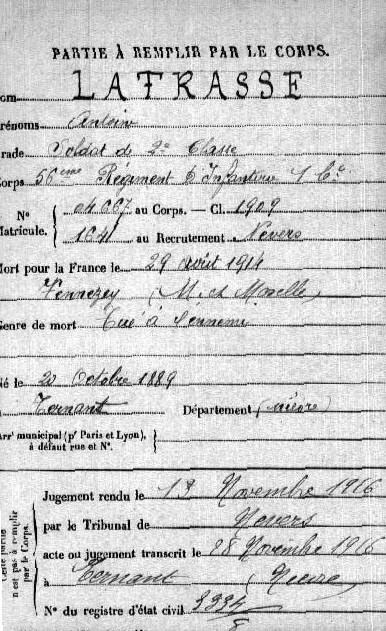 PARTIE À REMPLIR PAR LE CORPS.
LATRASSE
Antoine
Soldat de 2e Classe
56ème Régiment d'Infanterie
No Matricule.
au Corps. — Cl. 1909
1641 au Recrutement Nevers
Mort pour la France le 29 août 1914
Vennezey (M. et Moselle)
Genre de mort Tué à l'ennemi
Né le 20 Octobre 1889
Ternant Département (Nièvre)
Arrt municipal (pr Paris et Lyon),
à défaut rue et No.
Cette partie
n'est pas à remplir
par le Corps.
Jugement rendu le 13 Novembre 1916
par le Tribunal de Nevers
acte ou jugement transcrit le 28 Novembre 1916
à Ternant (Nièvre)
No du registre d'état civil